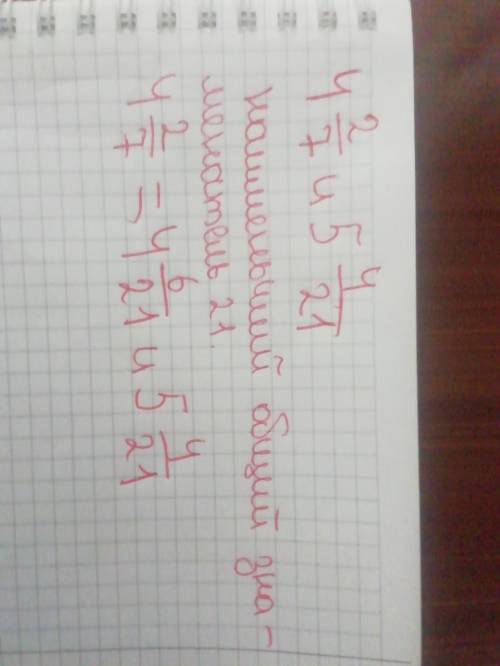 4 2/7 и 5 4/21
наименьший общий зна-
менатель 21.
4 2/7 = 4 6/21 и 5 4/21